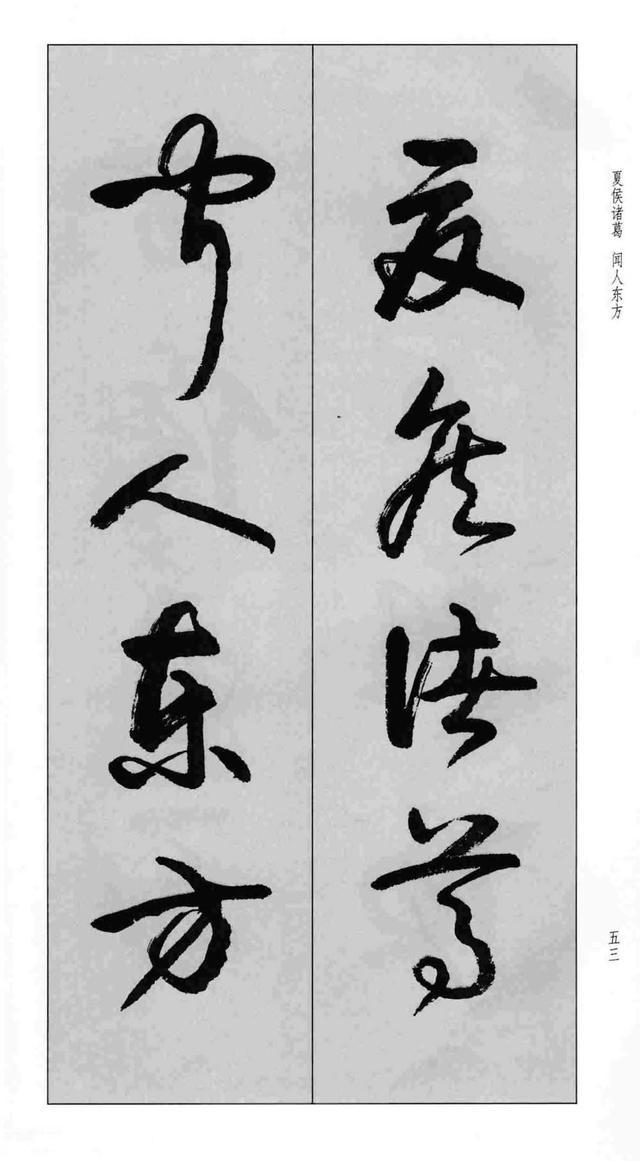 夏侯诸葛 闻人东方
夏侯诸葛
闻人东方
五三